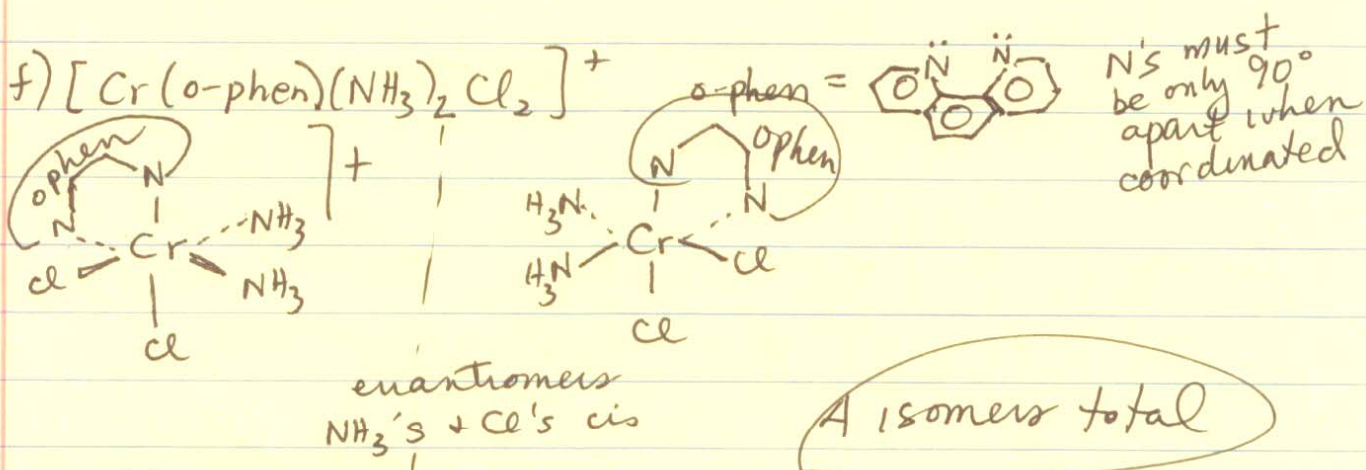 f) [Cr(o-phen)(NH₃)₂Cl₂]⁺
o-phen = N̈ N̈
N's must
be only 90°
apart when
coordinated
ophen
N
N
Cr
NH₃
NH₃
Cl
Cl
]+
ophen
N
N
H₃N
H₃N
Cr
Cl
Cl
enantiomers
NH₃'s + Cl's cis
4 isomers total